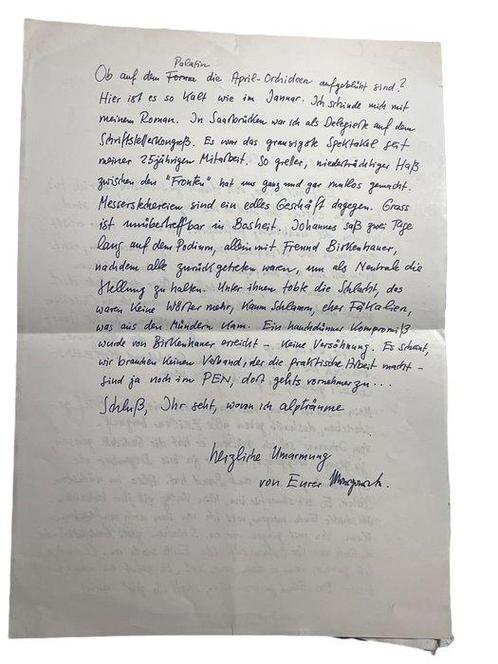 Palatin
Ob auf dem Forum die April-Orchideen aufgeblüht sind?
Hier ist es so kalt wie im Januar. Ich schinde mich mit
meinem Roman. In Saarbrücken war ich als Delegierte auf dem
Schriftstellerkongreß. Es war das grausigste Spektakel seit
meiner 25jährigen Mitarbeit. So greller, niederträchtiger Haß
zwischen den "Fronten" hat uns ganz und gar mutlos gemacht.
Messerstechereien sind ein edles Geschäft dagegen. Grass
ist unübertreffbar in Bosheit. Johannes saß zwei Tage
lang auf dem Podium, allein mit Freund Birkenhauer,
nachdem alle zurückgetreten waren, um als Neutrale die
Stellung zu halten. Unter ihnen tobte die Schlacht, das
waren keine Wörter mehr, kaum Schlamm, eher Fäkalien,
was aus den Mündern kam. Ein hauchdünner Kompromiß
wurde von Birkenhauer erreicht – keine Versöhnung. Es scheint,
wir brauchen keinen Verband, der die praktische Arbeit macht –
sind ja noch im PEN, dort gehts vornehmer zu...
Schluß, Ihr seht, wovon ich alpträume
herzliche Umarmung
von Eurer